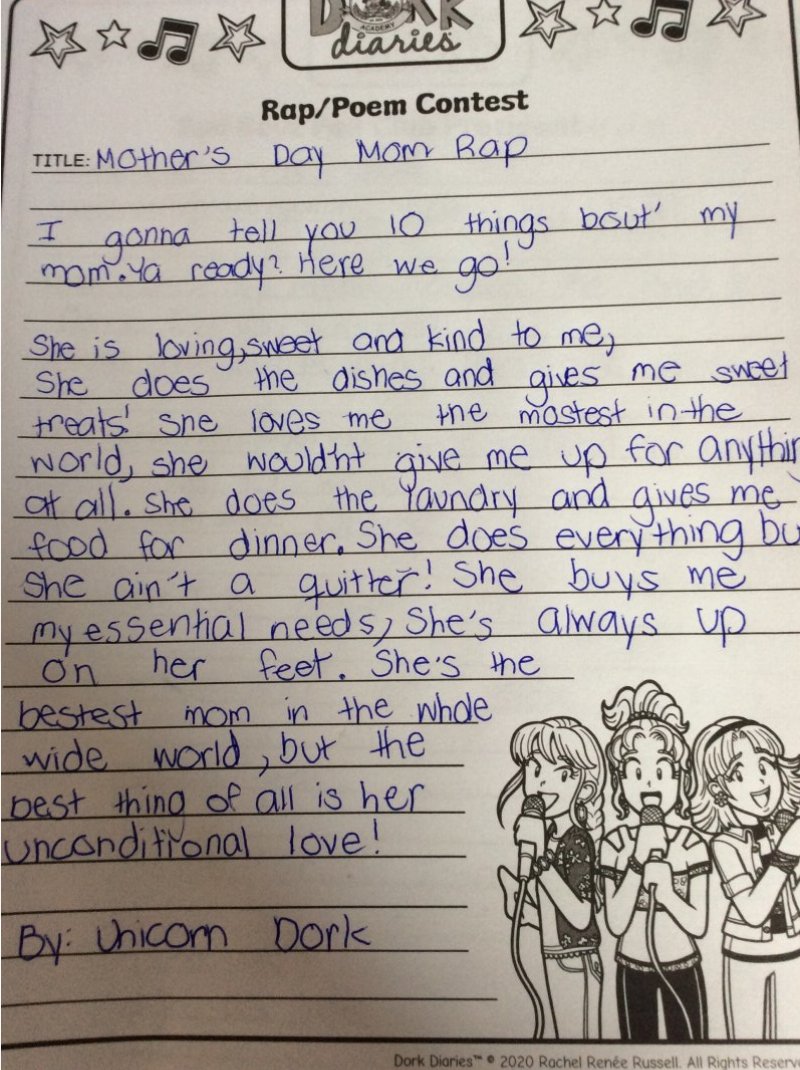 DORK
ACADEMY
diaries
Rap/Poem Contest
TITLE: Mother's Day Mom Rap
I gonna tell you 10 things bout' my
mom. Ya ready? Here we go!
She is loving, sweet and kind to me,
She does the dishes and gives me sweet
treats! She loves me the mostest in the
world, she would'nt give me up for anythin
at all. She does the laundry and gives me
food for dinner. She does everything bu
she ain't a quitter! She buys me
my essential needs, She's always up
on her feet. She's the
bestest mom in the whole
wide world, but the
best thing of all is her
unconditional love!
By: Unicorn Dork
Dork Diaries™ © 2020 Rachel Renée Russell. All Rights Reserve